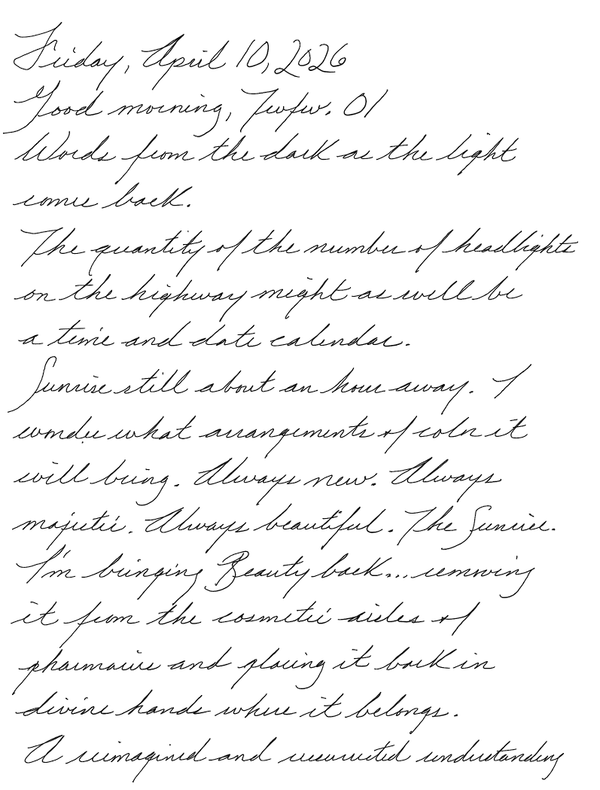 Friday, April 10, 2026
Good morning, Twfw. 01
Words from the dark as the light
come back.
The quantity of the number of headlights
on the highway might as well be
a time and date calendar.
Sunrise still about an hour away. I
wonder what arrangements of color it
will bring. Always new. Always
majestic. Always beautiful. The Sunrise.
I'm bringing Beauty back... removing
it from the cosmetic aisles of
pharmacies and placing it back in
divine hands where it belongs.
A reimagined and resurrected understanding